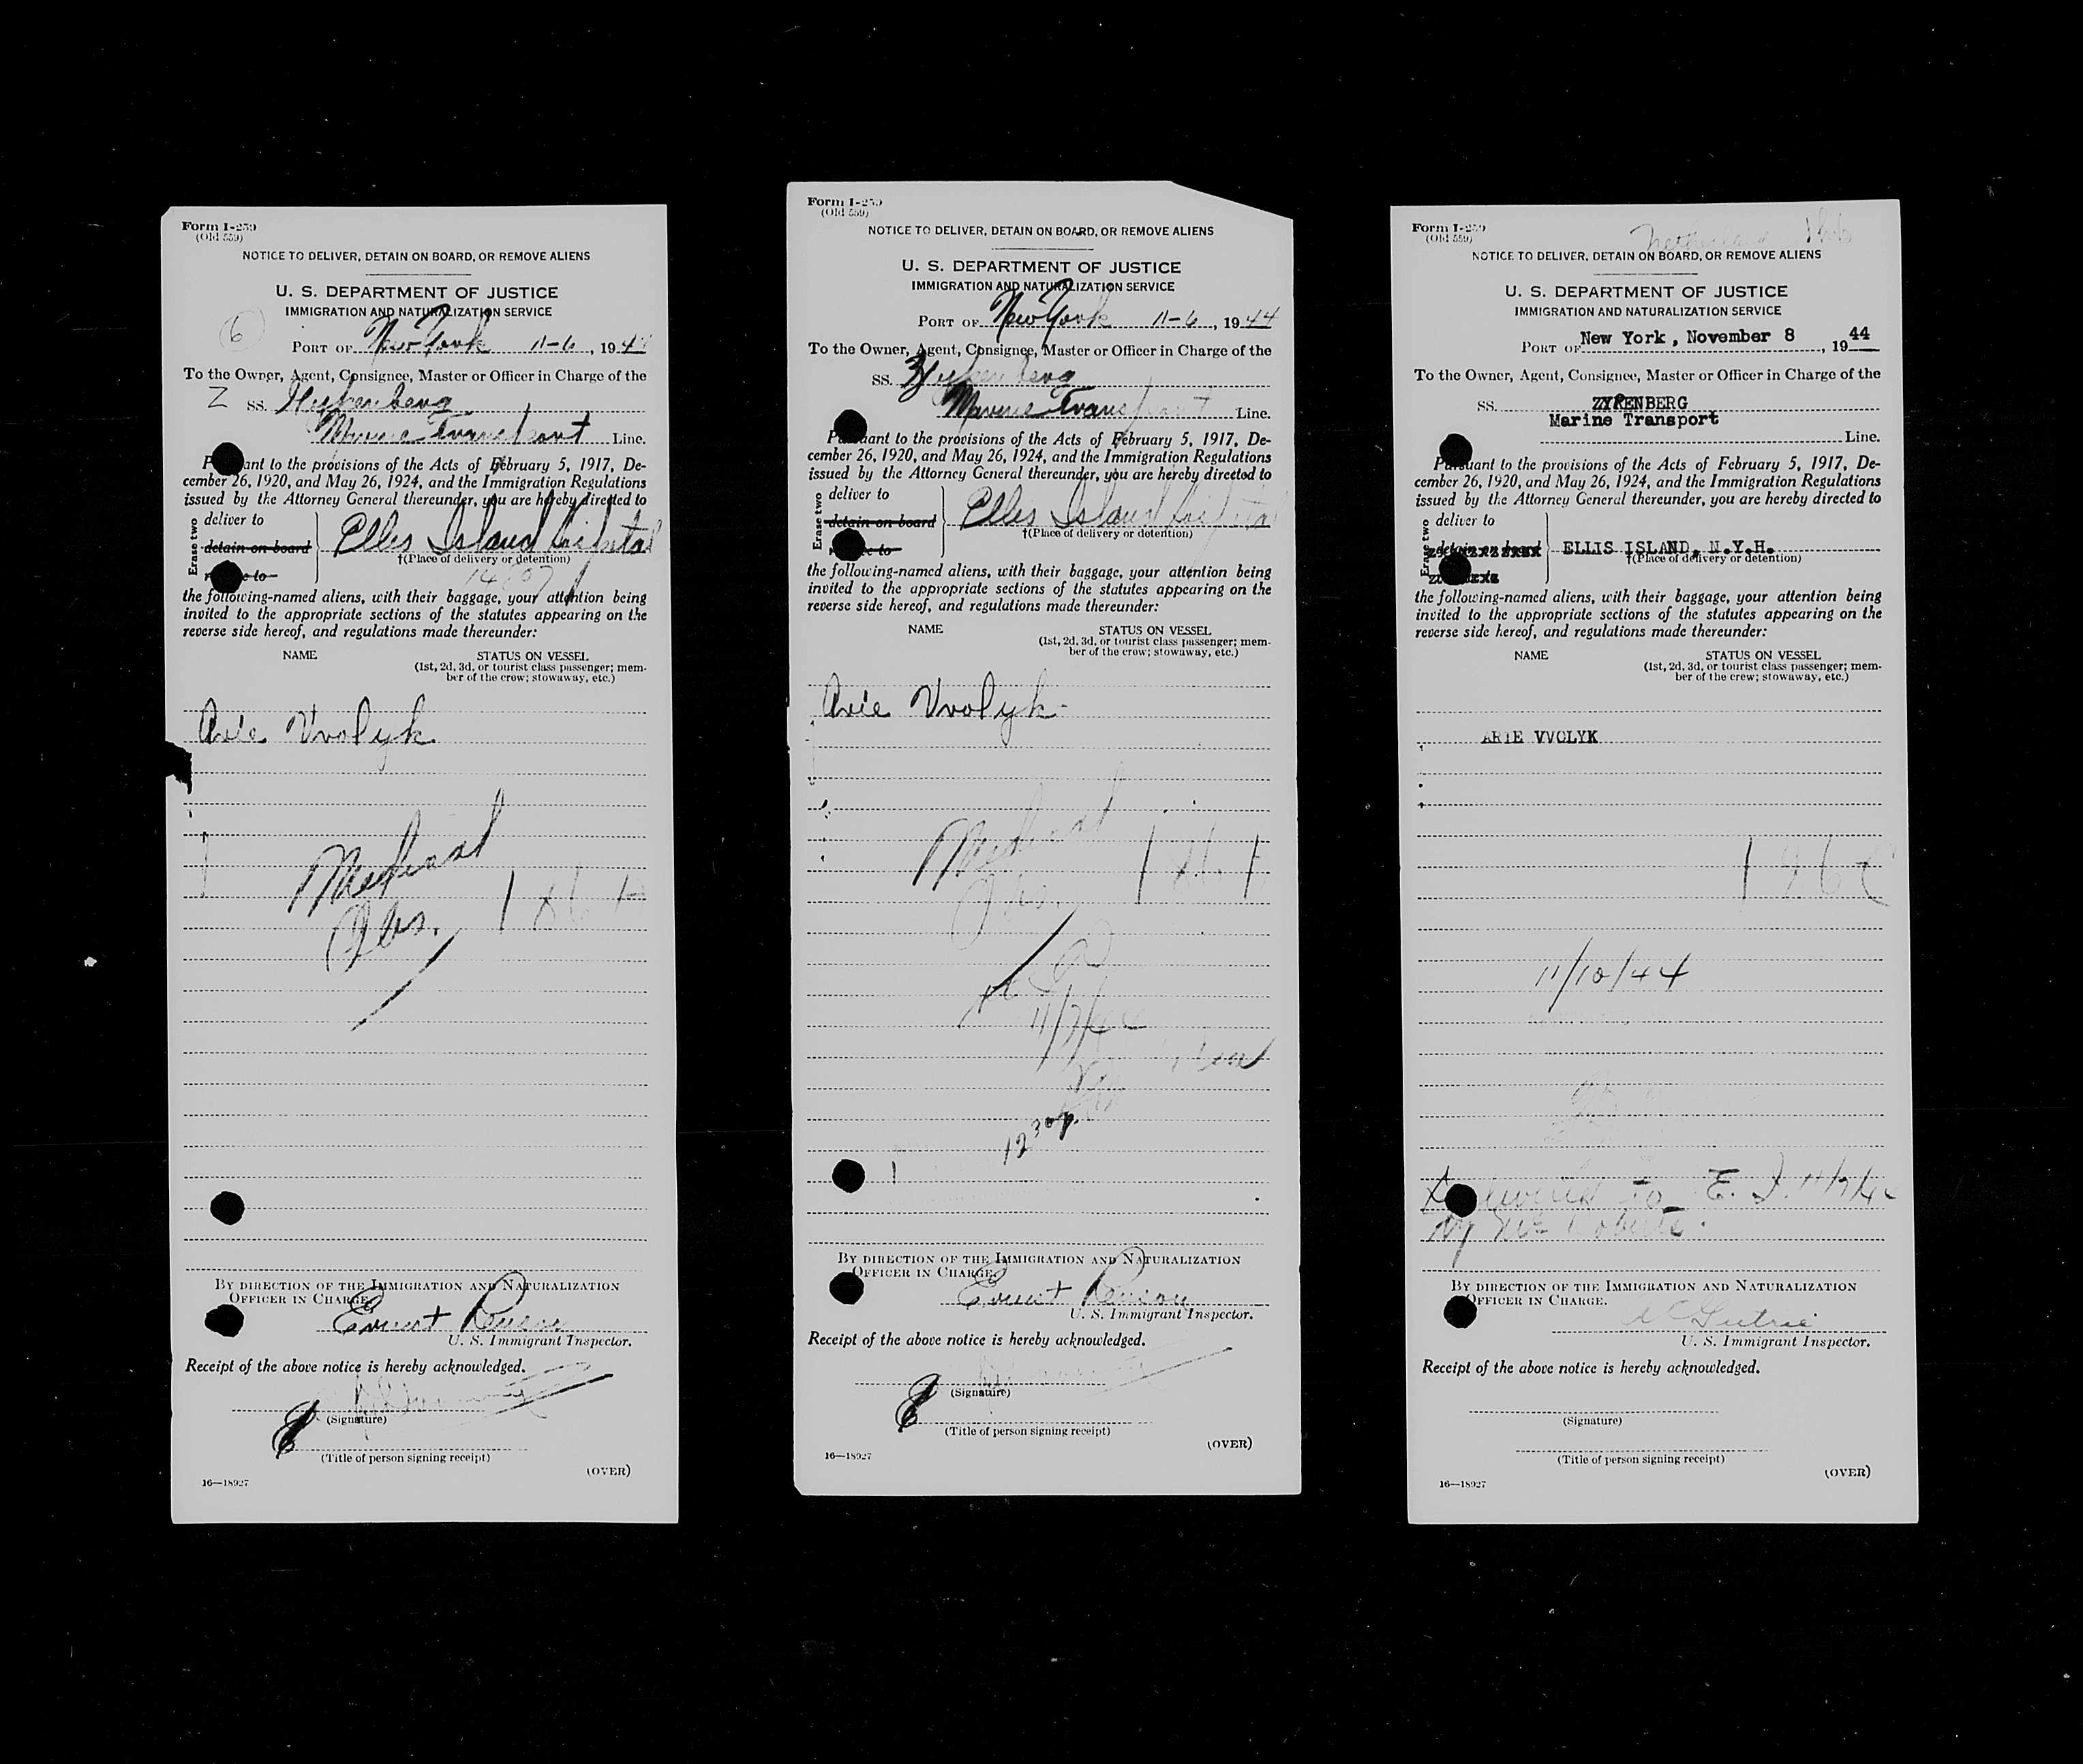 Form I-259
(Old 559)
NOTICE TO DELIVER, DETAIN ON BOARD, OR REMOVE ALIENS
U. S. DEPARTMENT OF JUSTICE
IMMIGRATION AND NATURALIZATION SERVICE
6
PORT OF New York 11-6, 1944
To the Owner, Agent, Consignee, Master or Officer in Charge of the
Z SS.
Marine Transport Line.
Pursuant to the provisions of the Acts of February 5, 1917, De-
cember 26, 1920, and May 26, 1924, and the Immigration Regulations
issued by the Attorney General thereunder, you are hereby directed to
Erase two
deliver to
detain on board
Ellis Island Hospital
†(Place of delivery or detention)
the following-named aliens, with their baggage, your attention being
invited to the appropriate sections of the statutes appearing on the
reverse side hereof, and regulations made thereunder:
NAME STATUS ON VESSEL
(1st, 2d, 3d, or tourist class passenger; mem-
ber of the crew; stowaway, etc.)
Arie Vvolyk
Medical
Obs.
BY DIRECTION OF THE IMMIGRATION AND NATURALIZATION
OFFICER IN CHARGE.
U. S. Immigrant Inspector.
Receipt of the above notice is hereby acknowledged.
(Signature)
(Title of person signing receipt)
16—18927 (OVER)
Form I-259
(Old 559)
NOTICE TO DELIVER, DETAIN ON BOARD, OR REMOVE ALIENS
U. S. DEPARTMENT OF JUSTICE
IMMIGRATION AND NATURALIZATION SERVICE
PORT OF New York 11-6, 1944
To the Owner, Agent, Consignee, Master or Officer in Charge of the
SS.
Marine Transport Line.
Pursuant to the provisions of the Acts of February 5, 1917, De-
cember 26, 1920, and May 26, 1924, and the Immigration Regulations
issued by the Attorney General thereunder, you are hereby directed to
Erase two
deliver to
detain on board
Ellis Island Hospital
†(Place of delivery or detention)
the following-named aliens, with their baggage, your attention being
invited to the appropriate sections of the statutes appearing on the
reverse side hereof, and regulations made thereunder:
NAME STATUS ON VESSEL
(1st, 2d, 3d, or tourist class passenger; mem-
ber of the crew; stowaway, etc.)
Arie Vvolyk
Medical
Obs.
11/7/44
12 30 p.
BY DIRECTION OF THE IMMIGRATION AND NATURALIZATION
OFFICER IN CHARGE.
U. S. Immigrant Inspector.
Receipt of the above notice is hereby acknowledged.
(Signature)
(Title of person signing receipt)
16—18927 (OVER)
Form I-259
(Old 559)
NOTICE TO DELIVER, DETAIN ON BOARD, OR REMOVE ALIENS
U. S. DEPARTMENT OF JUSTICE
IMMIGRATION AND NATURALIZATION SERVICE
PORT OF New York, November 8, 1944
To the Owner, Agent, Consignee, Master or Officer in Charge of the
SS. ZYPENBERG
Marine Transport
Line.
Pursuant to the provisions of the Acts of February 5, 1917, De-
cember 26, 1920, and May 26, 1924, and the Immigration Regulations
issued by the Attorney General thereunder, you are hereby directed to
Erase two
deliver to
detain on board
ELLIS ISLAND, N.Y.H.
†(Place of delivery or detention)
the following-named aliens, with their baggage, your attention being
invited to the appropriate sections of the statutes appearing on the
reverse side hereof, and regulations made thereunder:
NAME STATUS ON VESSEL
(1st, 2d, 3d, or tourist class passenger; mem-
ber of the crew; stowaway, etc.)
ARIE VVOLYK
11/10/44
Delivered to E. I. 11/7/44
by
BY DIRECTION OF THE IMMIGRATION AND NATURALIZATION
OFFICER IN CHARGE.
U. S. Immigrant Inspector.
Receipt of the above notice is hereby acknowledged.
(Signature)
(Title of person signing receipt)
16—18927 (OVER)